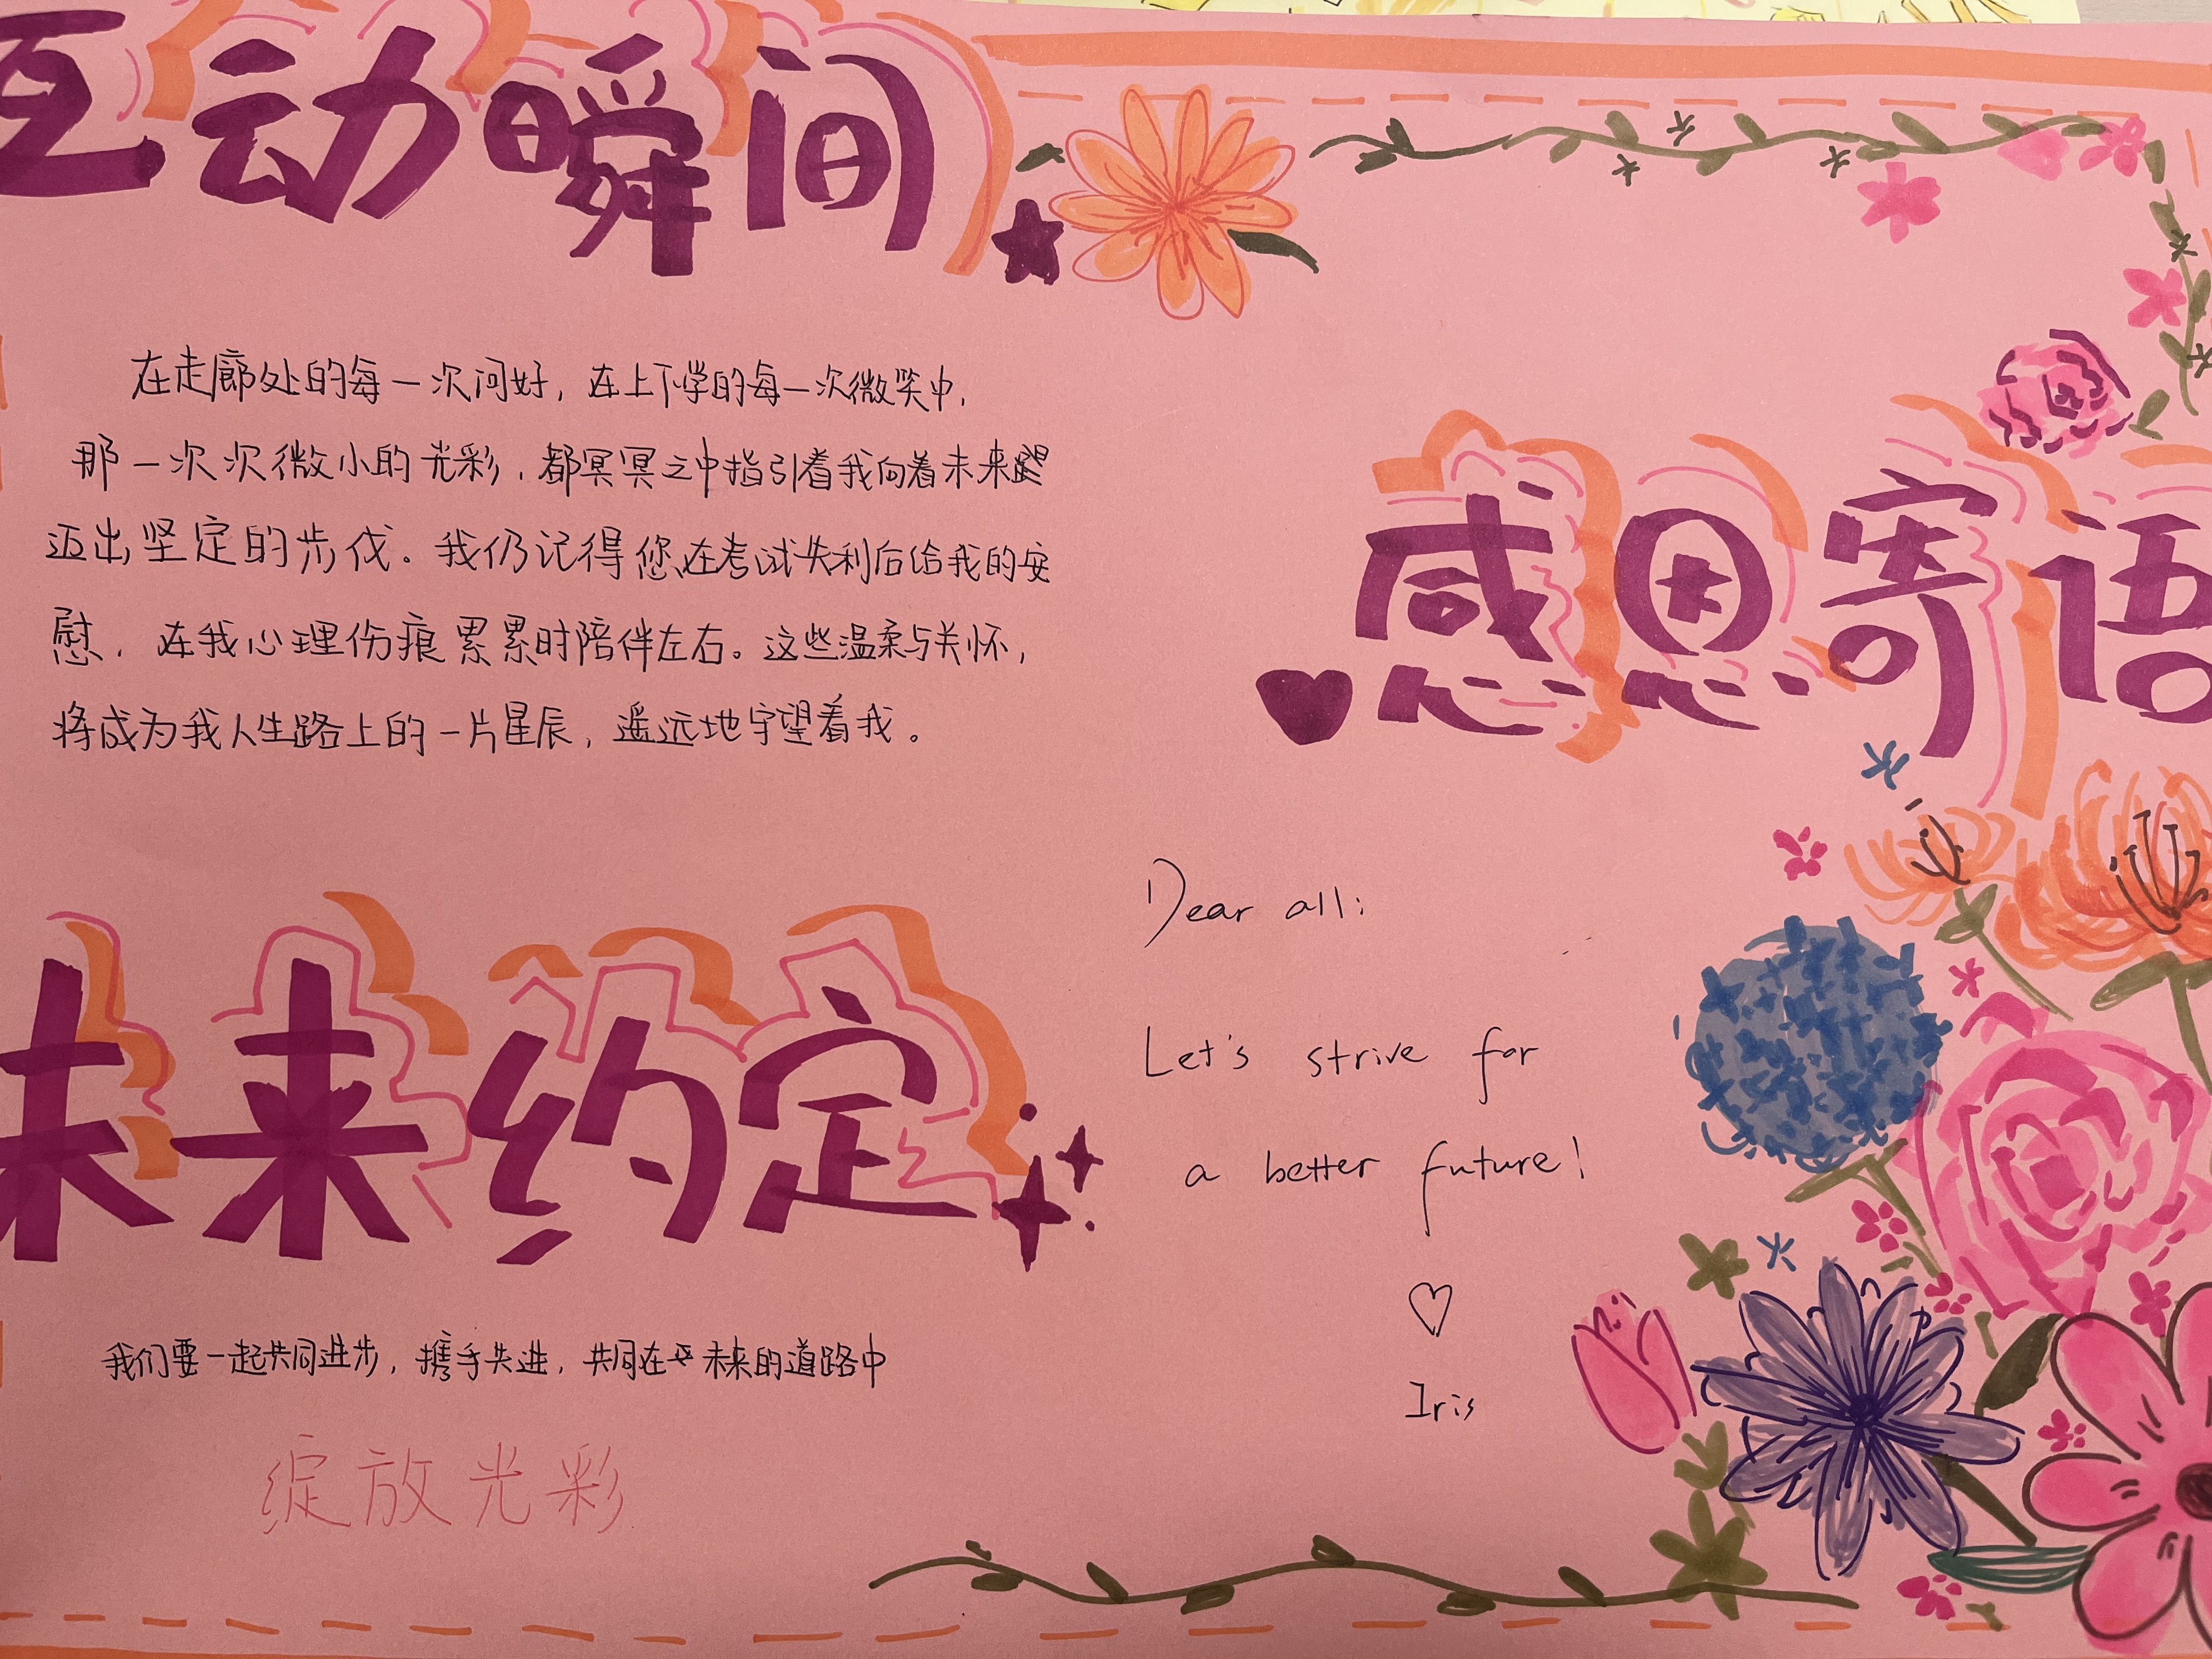 互动瞬间
在走廊处的每一次问好，在上下学的每一次微笑中，
那一次次微小的光彩，都冥冥之中指引着我向着未来
迈出坚定的步伐。我仍记得您在考试失利后给我的安
慰，在我心理伤痕累累时陪伴左右。这些温柔与关怀，
将成为我人生路上的一片星辰，遥远地守望着我。
未来约定
我们要一起共同进步，携手共进，共同在未来的道路中
绽放光彩
感恩寄语
Dear all:
Let's strive for
a better future!
♡
Iris